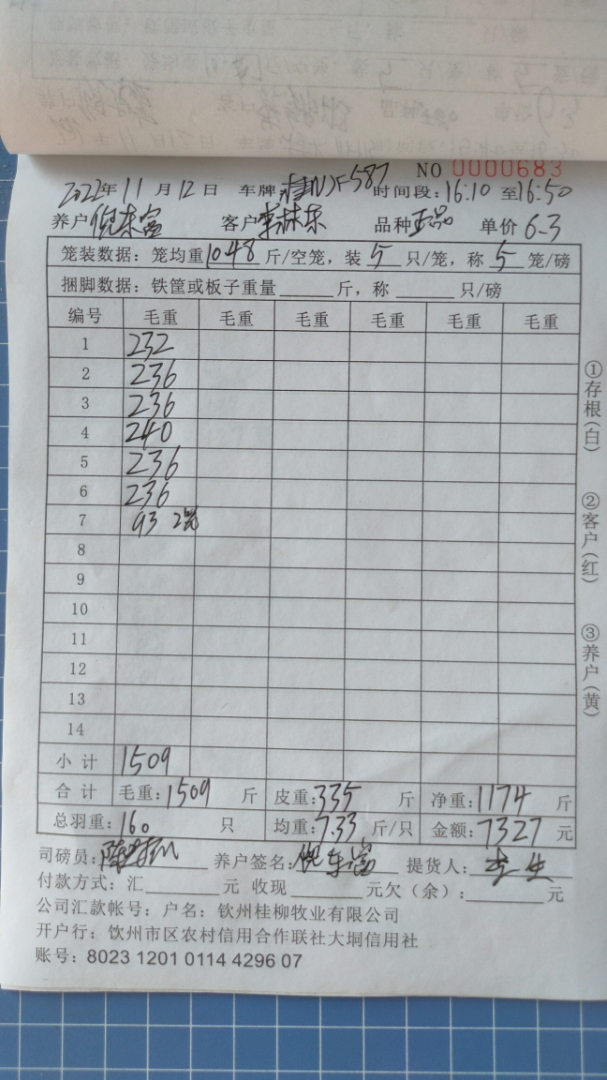 NO 0000683
2022年 11 月 12 日 车牌: 587 时间段: 16:10 至 16:50
养户 倪东富 客户 李林东 品种 正品 单价 6.3
笼装数据: 笼均重 10.48 斤/空笼, 装 5 只/笼, 称 5 笼/磅
捆脚数据: 铁筐或板子重量 斤, 称 只/磅
编号 毛重 毛重 毛重 毛重 毛重 毛重
1 232
2 236
3 236
4 240
5 236
6 236
7 93 2笼
8
9
10
11
12
13
14
小 计 1509
合 计 毛重: 1509 斤 皮重: 335 斤 净重: 1174 斤
总羽重: 160 只 均重: 7.33 斤/只 金额: 7327 元
司磅员: 养户签名: 倪东富 提货人: 李生
付款方式: 汇 元 收现 元欠(余): 元
公司汇款帐号: 户名: 钦州桂柳牧业有限公司
开户行: 钦州市区农村信用合作联社大垌信用社
账号: 8023 1201 0114 4296 07
①存根(白)
②客户(红)
③养户(黄)